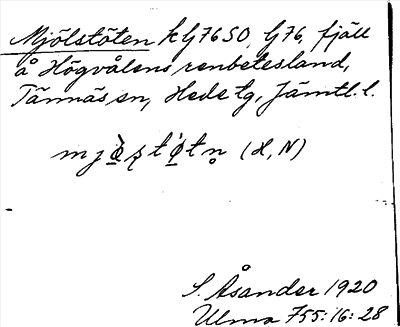 Mjölstöten k G7650, G76, fjäll
å Högvålens renbetesland,
Tännäs sn, Hede tg, Jämtl. l.
(H, N)
S. Åsander 1920
Ulma 755:16:28